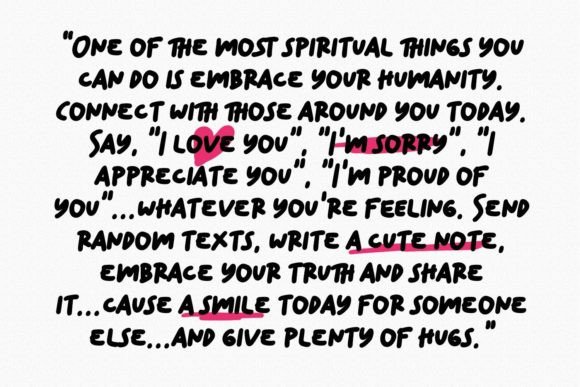 "One of the most spiritual things you
can do is embrace your humanity.
Connect with those around you today.
Say, "I love you", "I'm sorry", "I
appreciate you", "I'm proud of
you"...whatever you're feeling. Send
random texts, write a cute note,
embrace your truth and share
it...cause a smile today for someone
else...and give plenty of hugs."